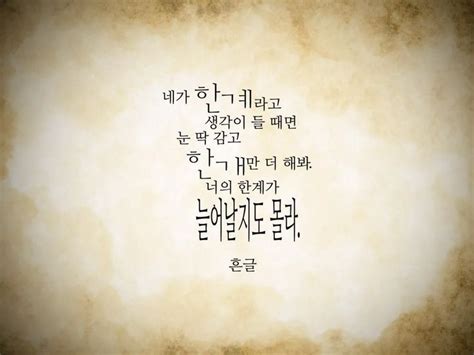 네가 한계라고
생각이 들 때면
눈 딱 감고
한 개만 더 해봐.
너의 한계가
늘어날지도 몰라.
흔글